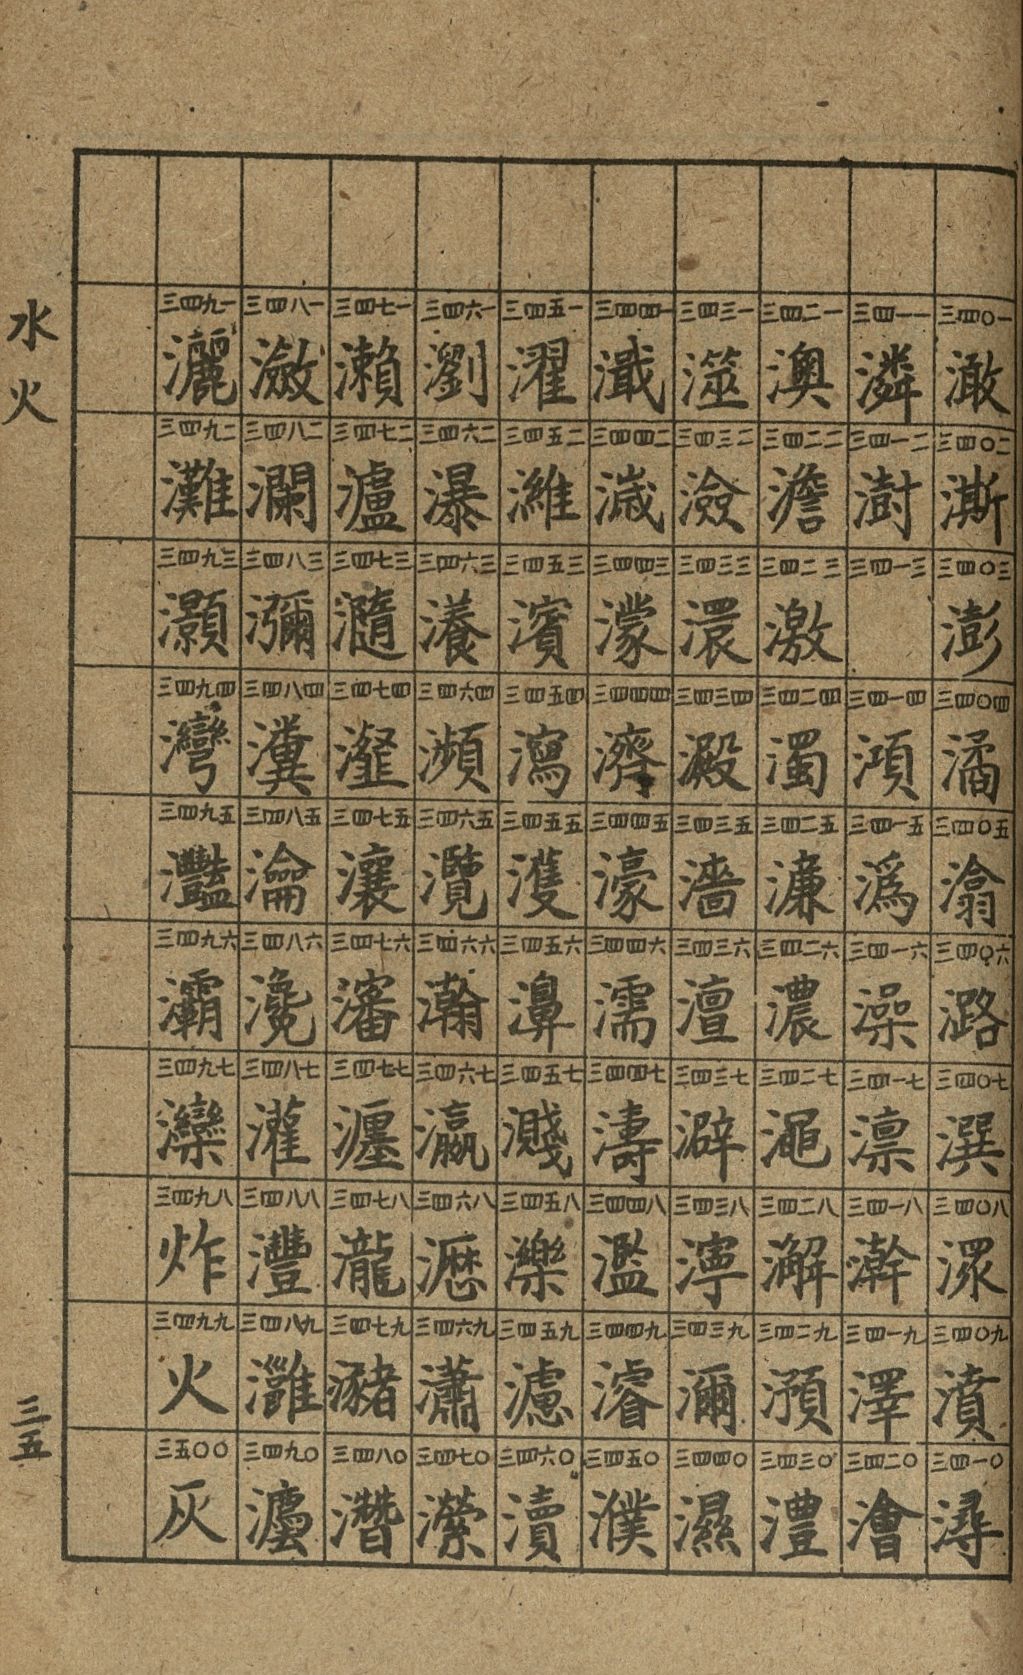 水火
三五
三四〇一 澉
三四〇二 澌
三四〇三 澎
三四〇四 潏
三四〇五 潝
三四〇六 潞
三四〇七 潠
三四〇八 潈
三四〇九 濆
三四一〇 潯
三四一一 潾
三四一二 澍
三四一三
三四一四 澒
三四一五 潙
三四一六 澡
三四一七 澟
三四一八 澣
三四一九 澤
三四二〇 澮
三四二一 澳
三四二二 澹
三四二三 激
三四二四 濁
三四二五 濂
三四二六 濃
三四二七 澠
三四二八 澥
三四二九 澦
三四三〇 澧
三四三一 澨
三四三二 澰
三四三三 澴
三四三四 澱
三四三五 濇
三四三六 澶
三四三七 澼
三四三八 濘
三四三九 濔
三四四〇 濕
三四四一
三四四二 濊
三四四三 濛
三四四四 濟
三四四五 濠
三四四六 濡
三四四七 濤
三四四八 濫
三四四九 濬
三四五〇 濮
三四五一 濯
三四五二 濰
三四五三 濱
三四五四 瀉
三四五五 濩
三四五六 濞
三四五七 濺
三四五八 濼
三四五九 濾
三四六〇 瀆
三四六一 瀏
三四六二 瀑
三四六三 瀁
三四六四 瀕
三四六五 灠
三四六六 瀚
三四六七 瀛
三四六八 瀝
三四六九 瀟
三四七〇 瀠
三四七一 瀨
三四七二 瀘
三四七三 瀡
三四七四 瀣
三四七五 瀼
三四七六 瀋
三四七七 瀍
三四七八 瀧
三四七九 瀦
三四八〇 灊
三四八一 瀲
三四八二 瀾
三四八三 瀰
三四八四 瀵
三四八五 瀹
三四八六 瀺
三四八七 灌
三四八八 灃
三四八九 灉
三四九〇
三四九一 灑
三四九二 灘
三四九三 灝
三四九四 灣
三四九五 灩
三四九六 灞
三四九七 灤
三四九八 炸
三四九九 火
三五〇〇 灰